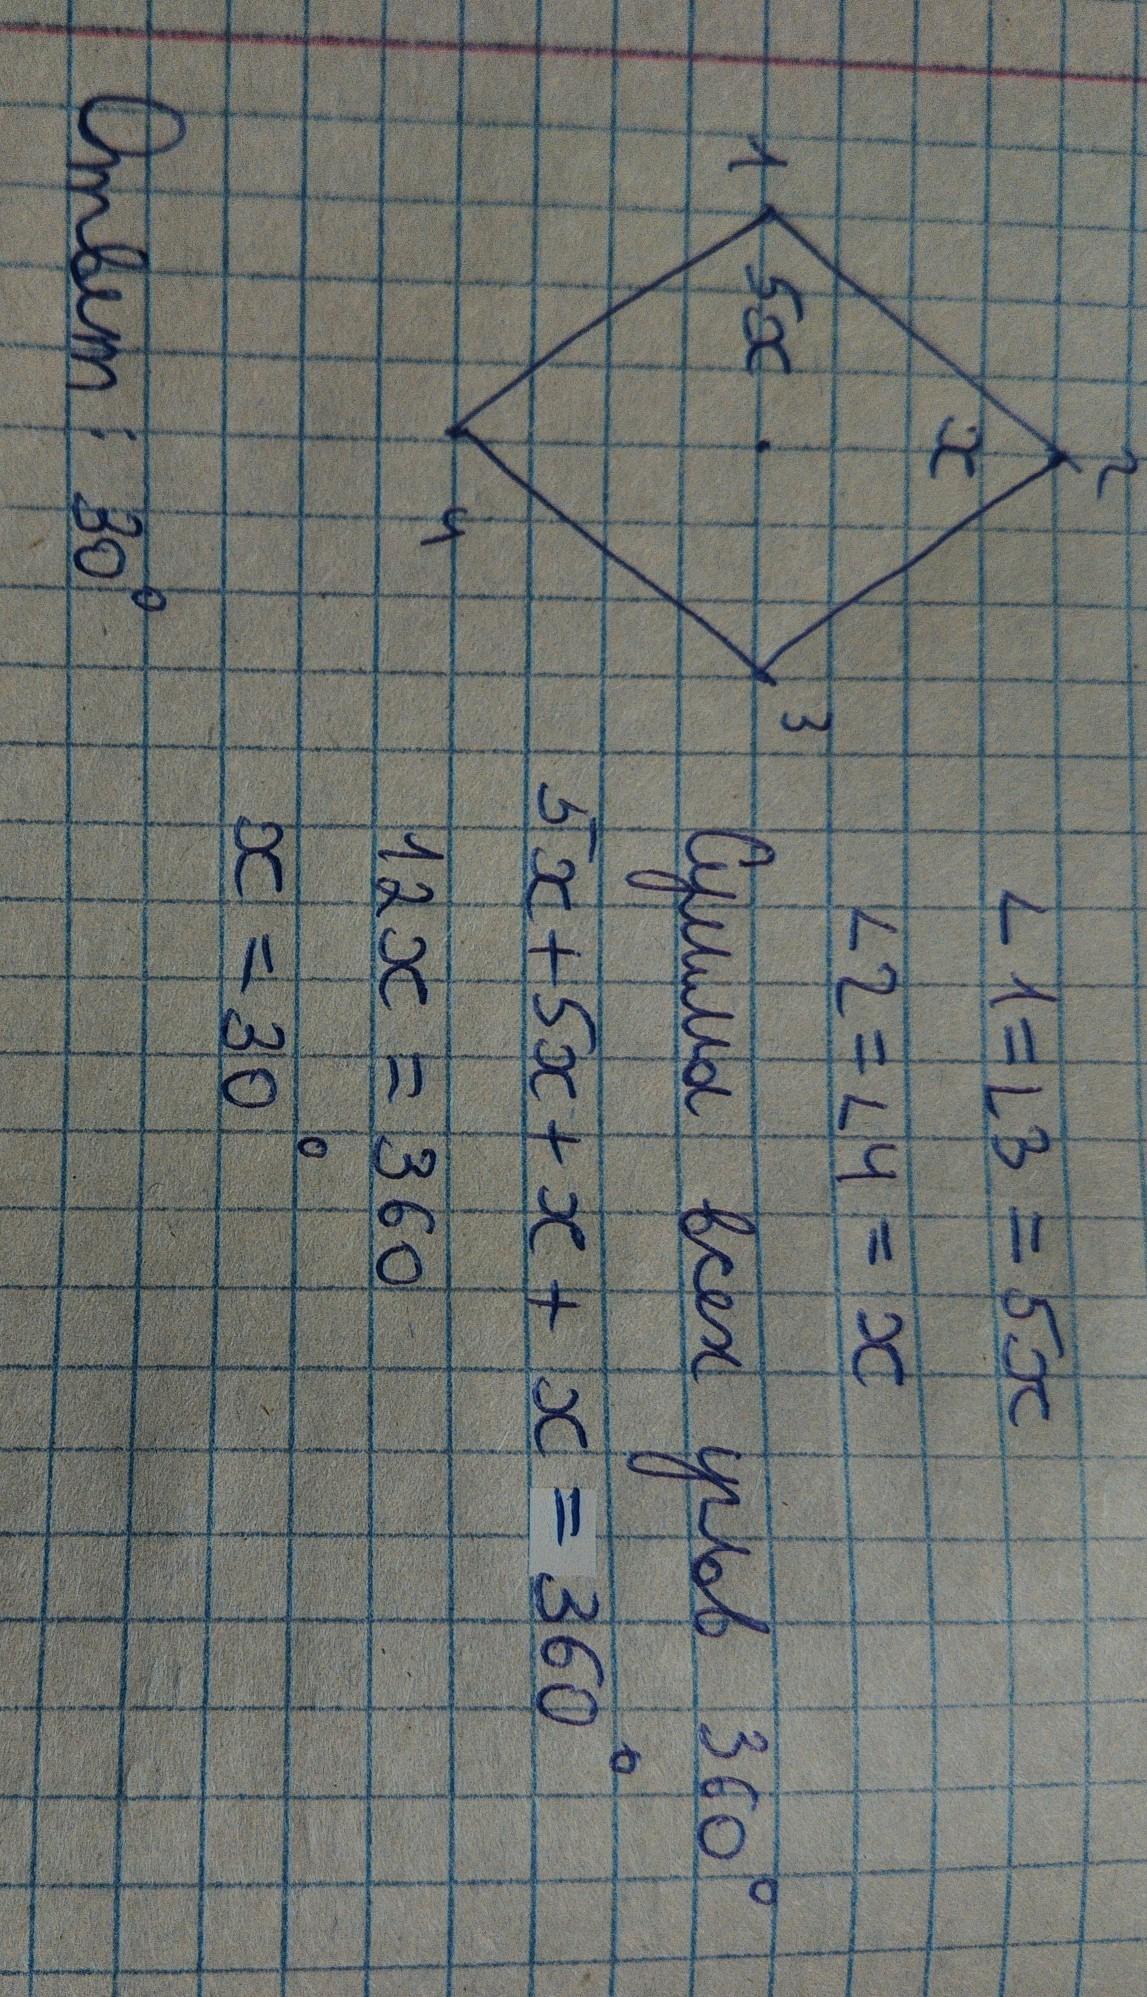 ∠1=∠3=5x
∠2=∠4=x
1
2
3
4
5x
x
Сумма всех углов 360°
5x+5x+x+x=360°
12x=360
x=30°
Ответ: 30°